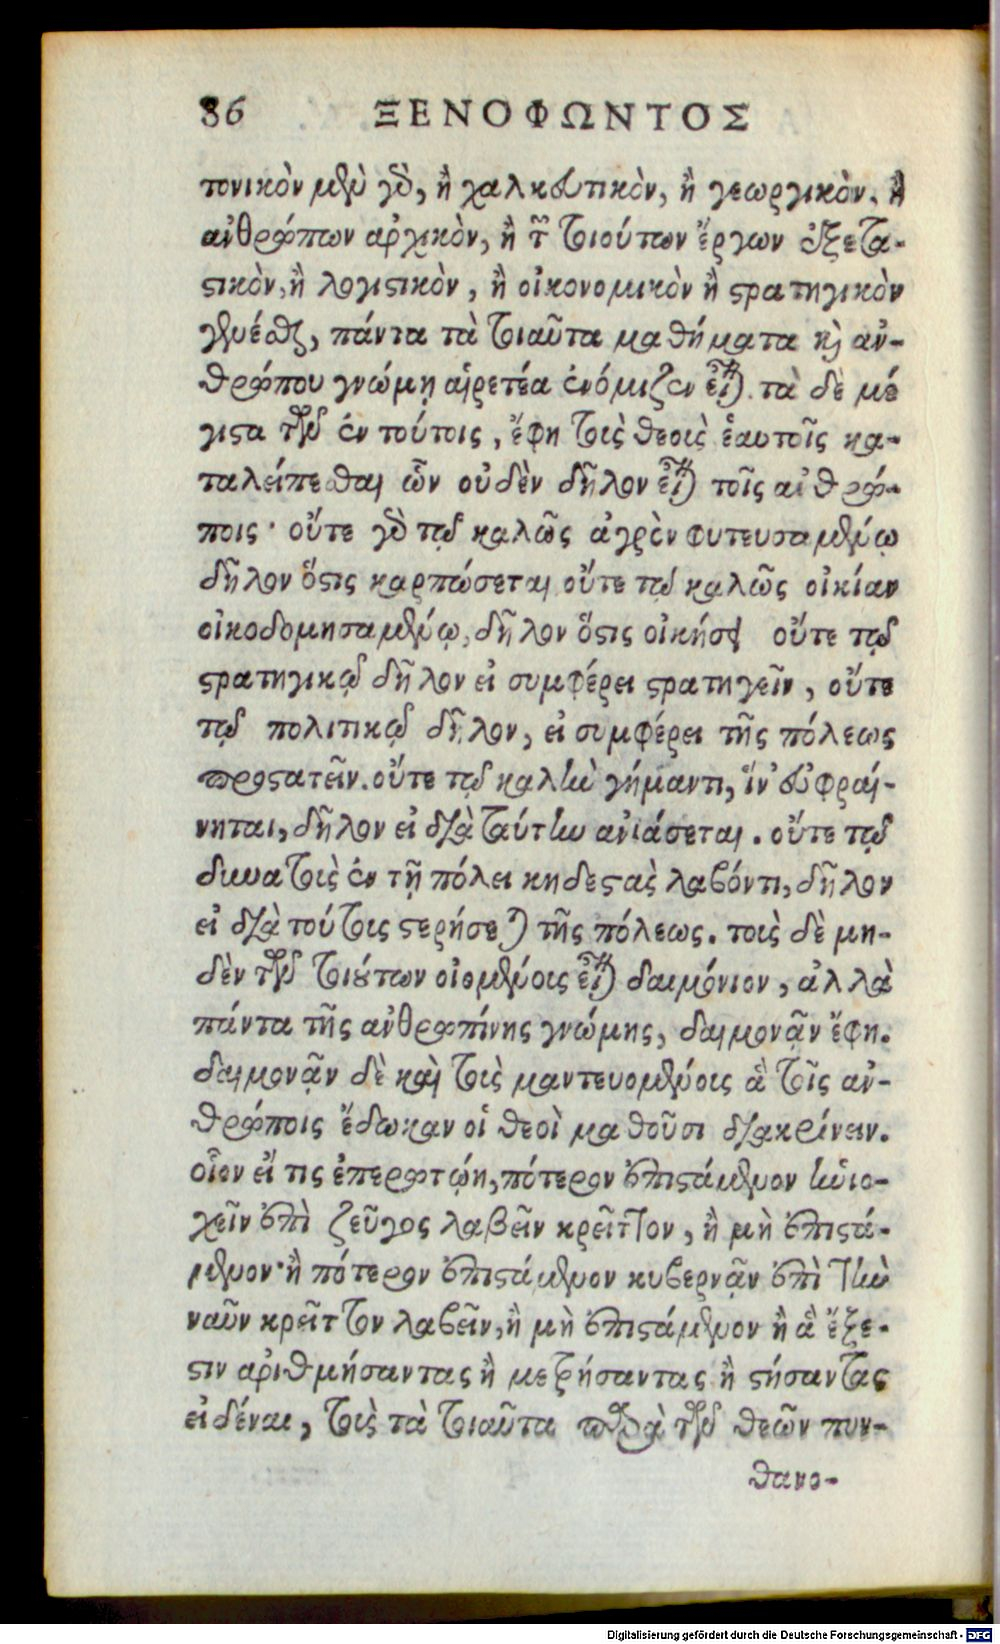 86 ΞΕΝΟΦΩΝΤΟΣ
τονικὸν μὲν γὸ, ἢ χαλκευτικὸν, ἢ γεωργικὸν, ἢ
ἀνθρώπων ἀρχικὸν, ἢ τ̃ τοιούτων ἔργων ἐξετα-
ςικὸν, ἢ λογιςικὸν, ἢ οἰκονομικὸν ἢ ςρατηγικὸν
γενέσθαι, πάντα τὰ τοιαῦτα μαθήματα κὶ ἀν-
θρώπου γνώμῃ αἱρετέα ἐνόμιζεν εἶναι. τὰ δὲ μέ
γιςα τῶν ἐν τούτοις, ἔφη τοὺς θεοὺς ἑαυτοῖς κα-
ταλείπεσθαι ὧν οὐδὲν δῆλον εἶναι τοῖς ἀνθρώ-
ποις· οὔτε γὸ τῷ καλῶς ἀγρὸν φυτευσαμένῳ
δῆλον ὅςις καρπώσεται οὔτε τῷ καλῶς οἰκίαν
οἰκοδομησαμένῳ, δῆλον ὅςις οἰκήσει οὔτε τῷ
ςρατηγικῷ δῆλον εἰ συμφέρει ςρατηγεῖν, οὔτε
τῷ πολιτικῷ δῆλον, εἰ συμφέρει τῆς πόλεως
προςατεῖν. οὔτε τῷ καλὴν γήμαντι, ἵν' εὐφραί-
νηται, δῆλον εἰ διὰ ταύτην ἀνιάσεται. οὔτε τῷ
δυνατοὺς ἐν τῇ πόλει κηδεςὰς λαβόντι, δῆλον
εἰ διὰ τούτους ςερήσεται τῆς πόλεως. τοὺς δὲ μη-
δὲν τῶν τοιȣ́των οἰομένους εἶναι δαιμόνιον, ἀλλὰ
πάντα τῆς ἀνθρωπίνης γνώμης, δαιμονᾷν ἔφη.
δαιμονᾷν δὲ καὶ τοὺς μαντευομένους ἃ τοῖς ἀν-
θρώποις ἔδωκαν οἱ θεοὶ μαθοῦσι διακρίνειν.
οἷον εἴ τις ἐπερωτῴη, πότερον ἐπιςάμενον ἡνιο-
χεῖν ἐπὶ ζεῦγος λαβεῖν κρεῖττον, ἢ μὴ ἐπιςά-
μενον· ἢ πότερον ἐπιςάμενον κυβερνᾷν ἐπὶ τὴν
ναῦν κρεῖττον λαβεῖν, ἢ μὴ ἐπιςάμενον ἢ ἃ ἔξε-
ςιν ἀριθμήσαντας ἢ μετρήσαντας ἢ ςήσαντας
εἰδέναι, τοὺς τὰ τοιαῦτα παρὰ τῶν θεῶν πυν-
θανο-
Digitalisierung gefördert durch die Deutsche Forschungsgemeinschaft - DFG